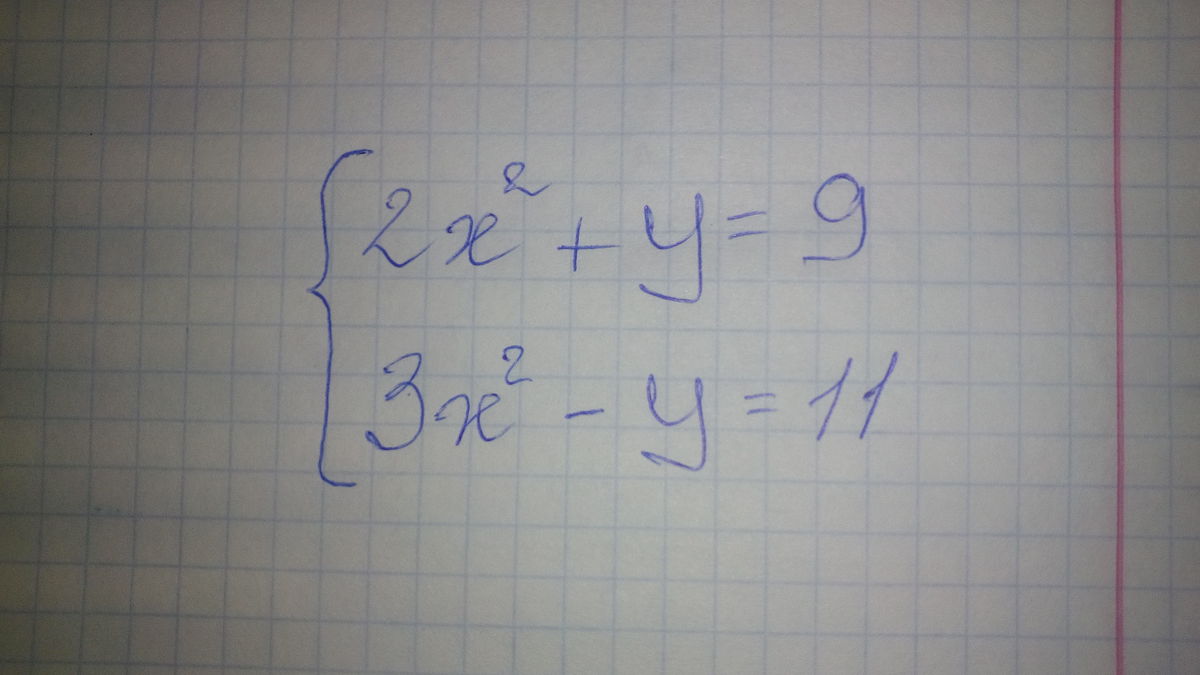 2x² + y = 9
3x² - y = 11